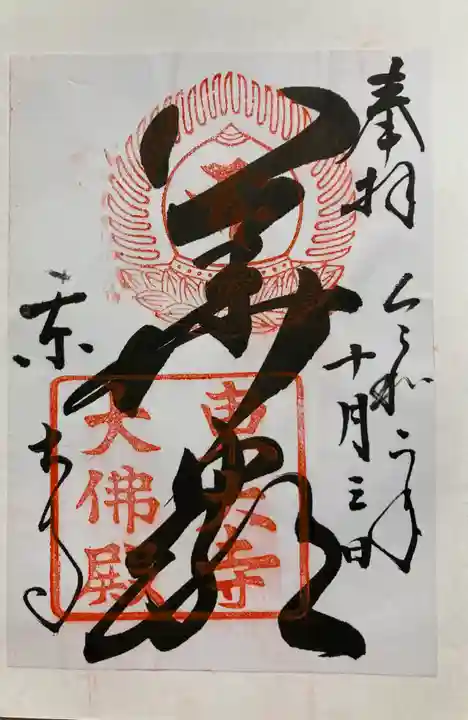 奉拝
令和二年
十月三日
華厳
東大寺
東大寺
大佛殿